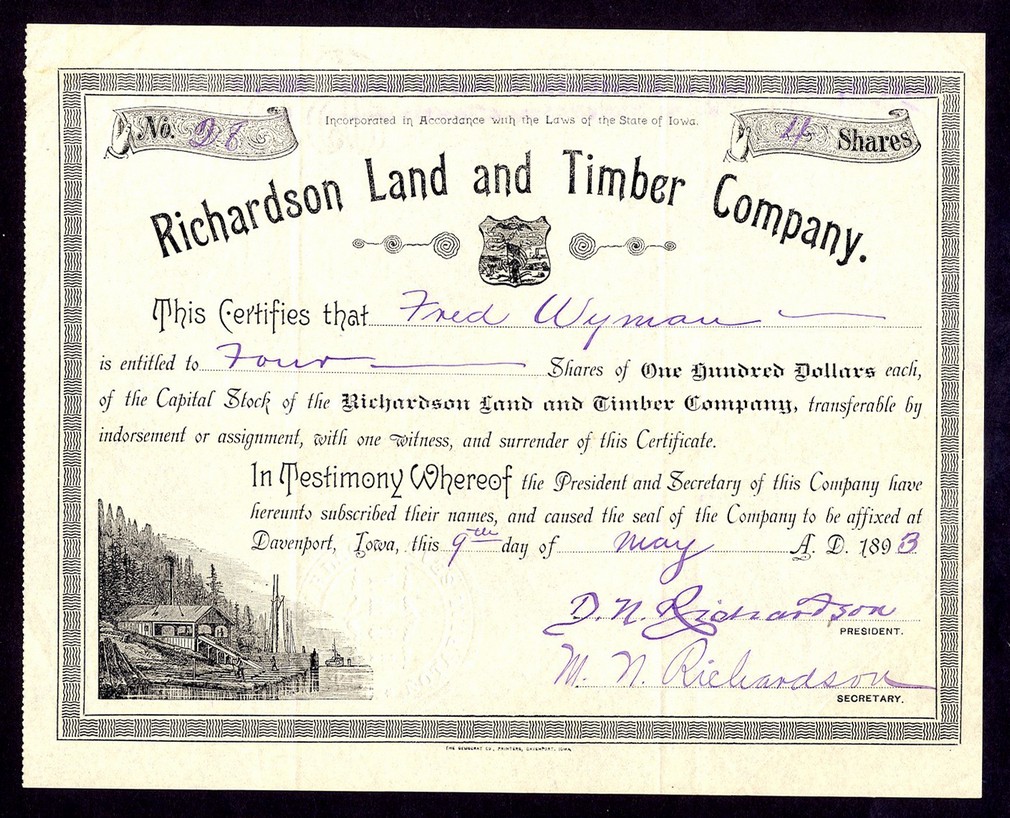 No. 28
Incorporated in Accordance with the Laws of the State of Iowa.
4 Shares
Richardson Land and Timber Company.
This Certifies that Fred Wyman
is entitled to Four Shares of One Hundred Dollars each,
of the Capital Stock of the Richardson Land and Timber Company, transferable by
indorsement or assignment, with one witness, and surrender of this Certificate.
In Testimony Whereof the President and Secretary of this Company have
hereunto subscribed their names, and caused the seal of the Company to be affixed at
Davenport, Iowa, this 9th day of May A. D. 1893
D. N. Richardson
PRESIDENT.
M. N. Richardson
SECRETARY.
THE DEMOCRAT CO., PRINTERS, DAVENPORT, IOWA.